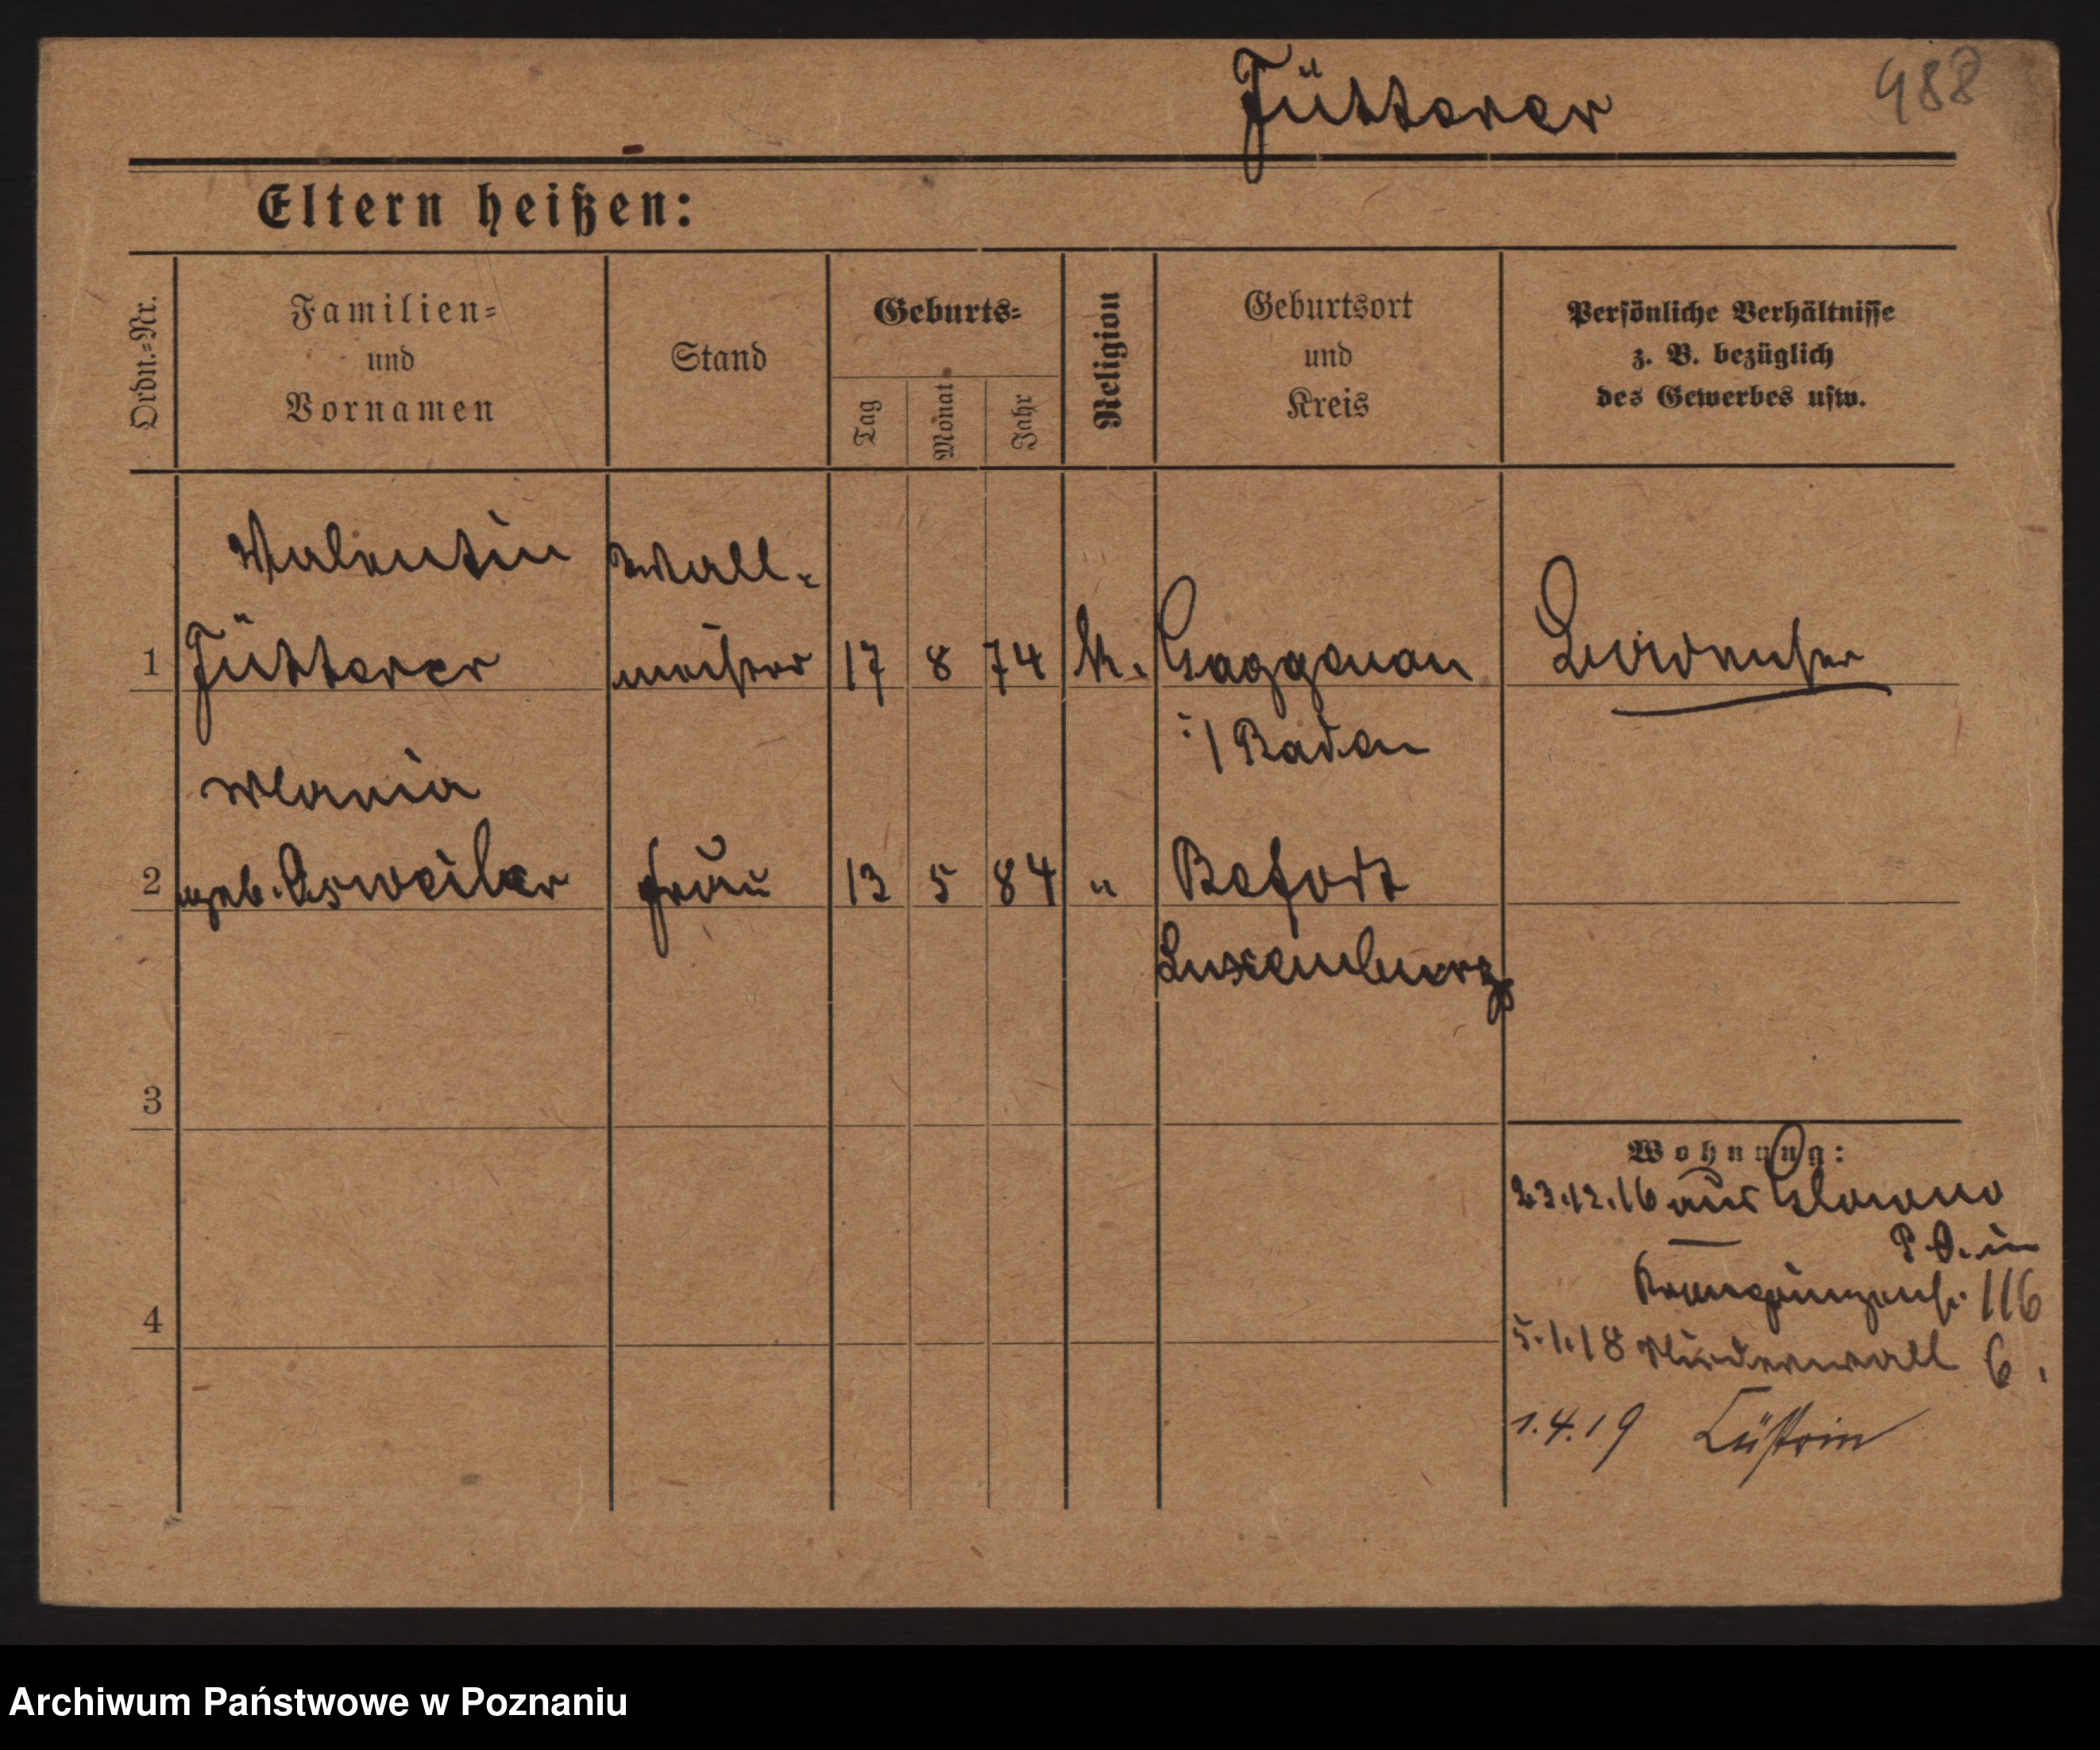 Fütterer 488
Eltern heißen:
Ordn.-Nr.
Familien-
und
Vornamen
Stand
Geburts-
Tag
Monat
Jahr
Religion
Geburtsort
und
Kreis
Persönliche Verhältnisse
z. B. bezüglich
des Gewerbes usw.
Valentin Wall-
1 Fütterer meister 17 8 74 k. Gaggenau
i/ Baden
Maria
2 geb. Asweiler Frau 13 5 84 " Befort
Luxemburg
3
Wohnung:
23.12.16 aus Glowno
P.O. in
Kronprinzenstr. 116
4
5.1.18 Niederwall 6.
1.4.19 Cüstrin
Archiwum Państwowe w Poznaniu